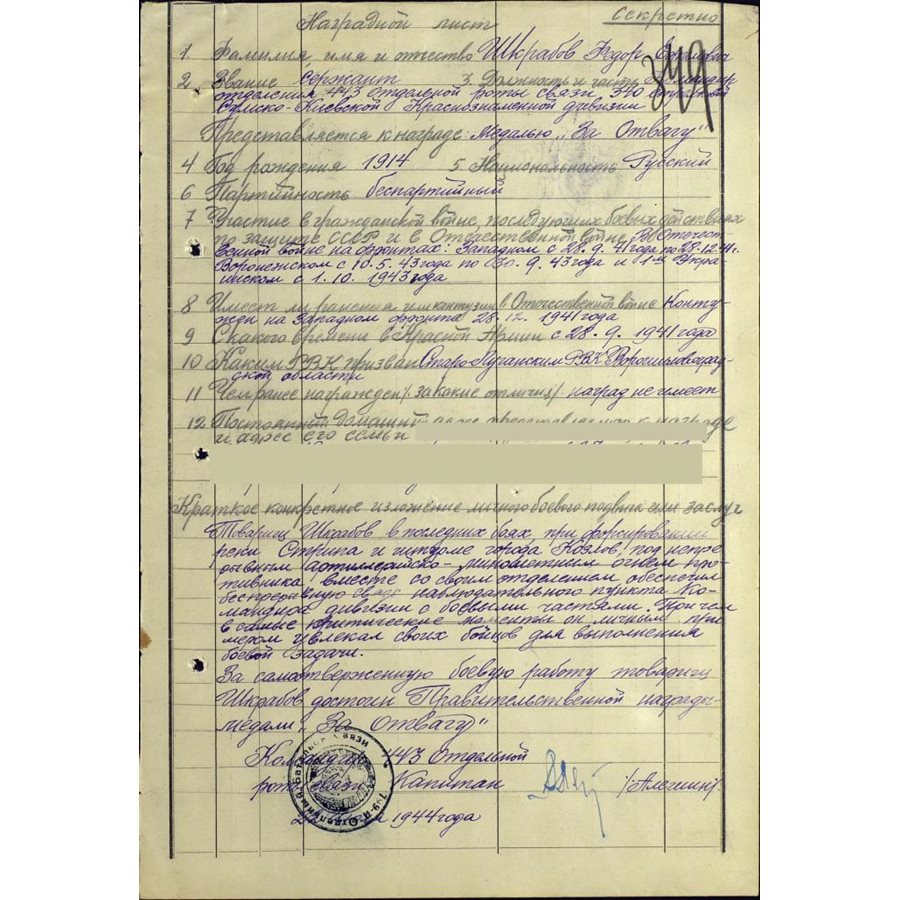 Секретно
Наградной лист
1 Фамилия, имя и отчество Шкрабов
2 Звание сержант 3. Должность и часть
отделения 443 отдельной роты связи, 340
Сумско-Киевской Краснознаменной дивизии
Представляется к награде: Медалью „За Отвагу"
4 Год рождения 1914 5 Национальность Русский
6 Партийность беспартийный
7 Участие в гражданской войне, последующих боевых действиях
по защите СССР и в Отечественной войне В Отечест-
венной войне на фронтах: Западном с 28.9.41 года по 28.12.41г.
Воронежском с 10.5.43 года по 30.9.43 года и 1-м Укра-
инском с 1.10.1943 года
8 Имеет ли ранения или контузии в Отечественной войнеКонту-
жен на Западном фронте 28.12.1941 года
9 С какого времени в Красной Армии с 28.9.1941 года
10 Каким РВК призван Старо-Луганским РВК Ворошиловоград-
ской области
11 Чем ранее награжден /за какие отличия/ наград не имеет
12 Постоянный домашний адрес представляемого к награде
и адрес его семьи
Краткое конкретное изложение личного боевого подвига или заслуг
Товарищ Шкрабов в последних боях, при форсировании
реки Стрипа и штурме города Козлов, под непре-
рывным артиллерийско-минометным огнем про-
тивника вместе со своим отделением обеспечил
беспрерывную связь наблюдательного пункта Ко-
мандира дивизии с боевыми частями. Причем
в самые критические моменты он личным при-
мером увлекал своих бойцов для выполнения
боевой задачи.
За самоотверженную боевую работу товарищ
Шкрабов достоин Правительственной награды-
медали „За Отвагу"
443 Отдельной
Капитан
1944 года